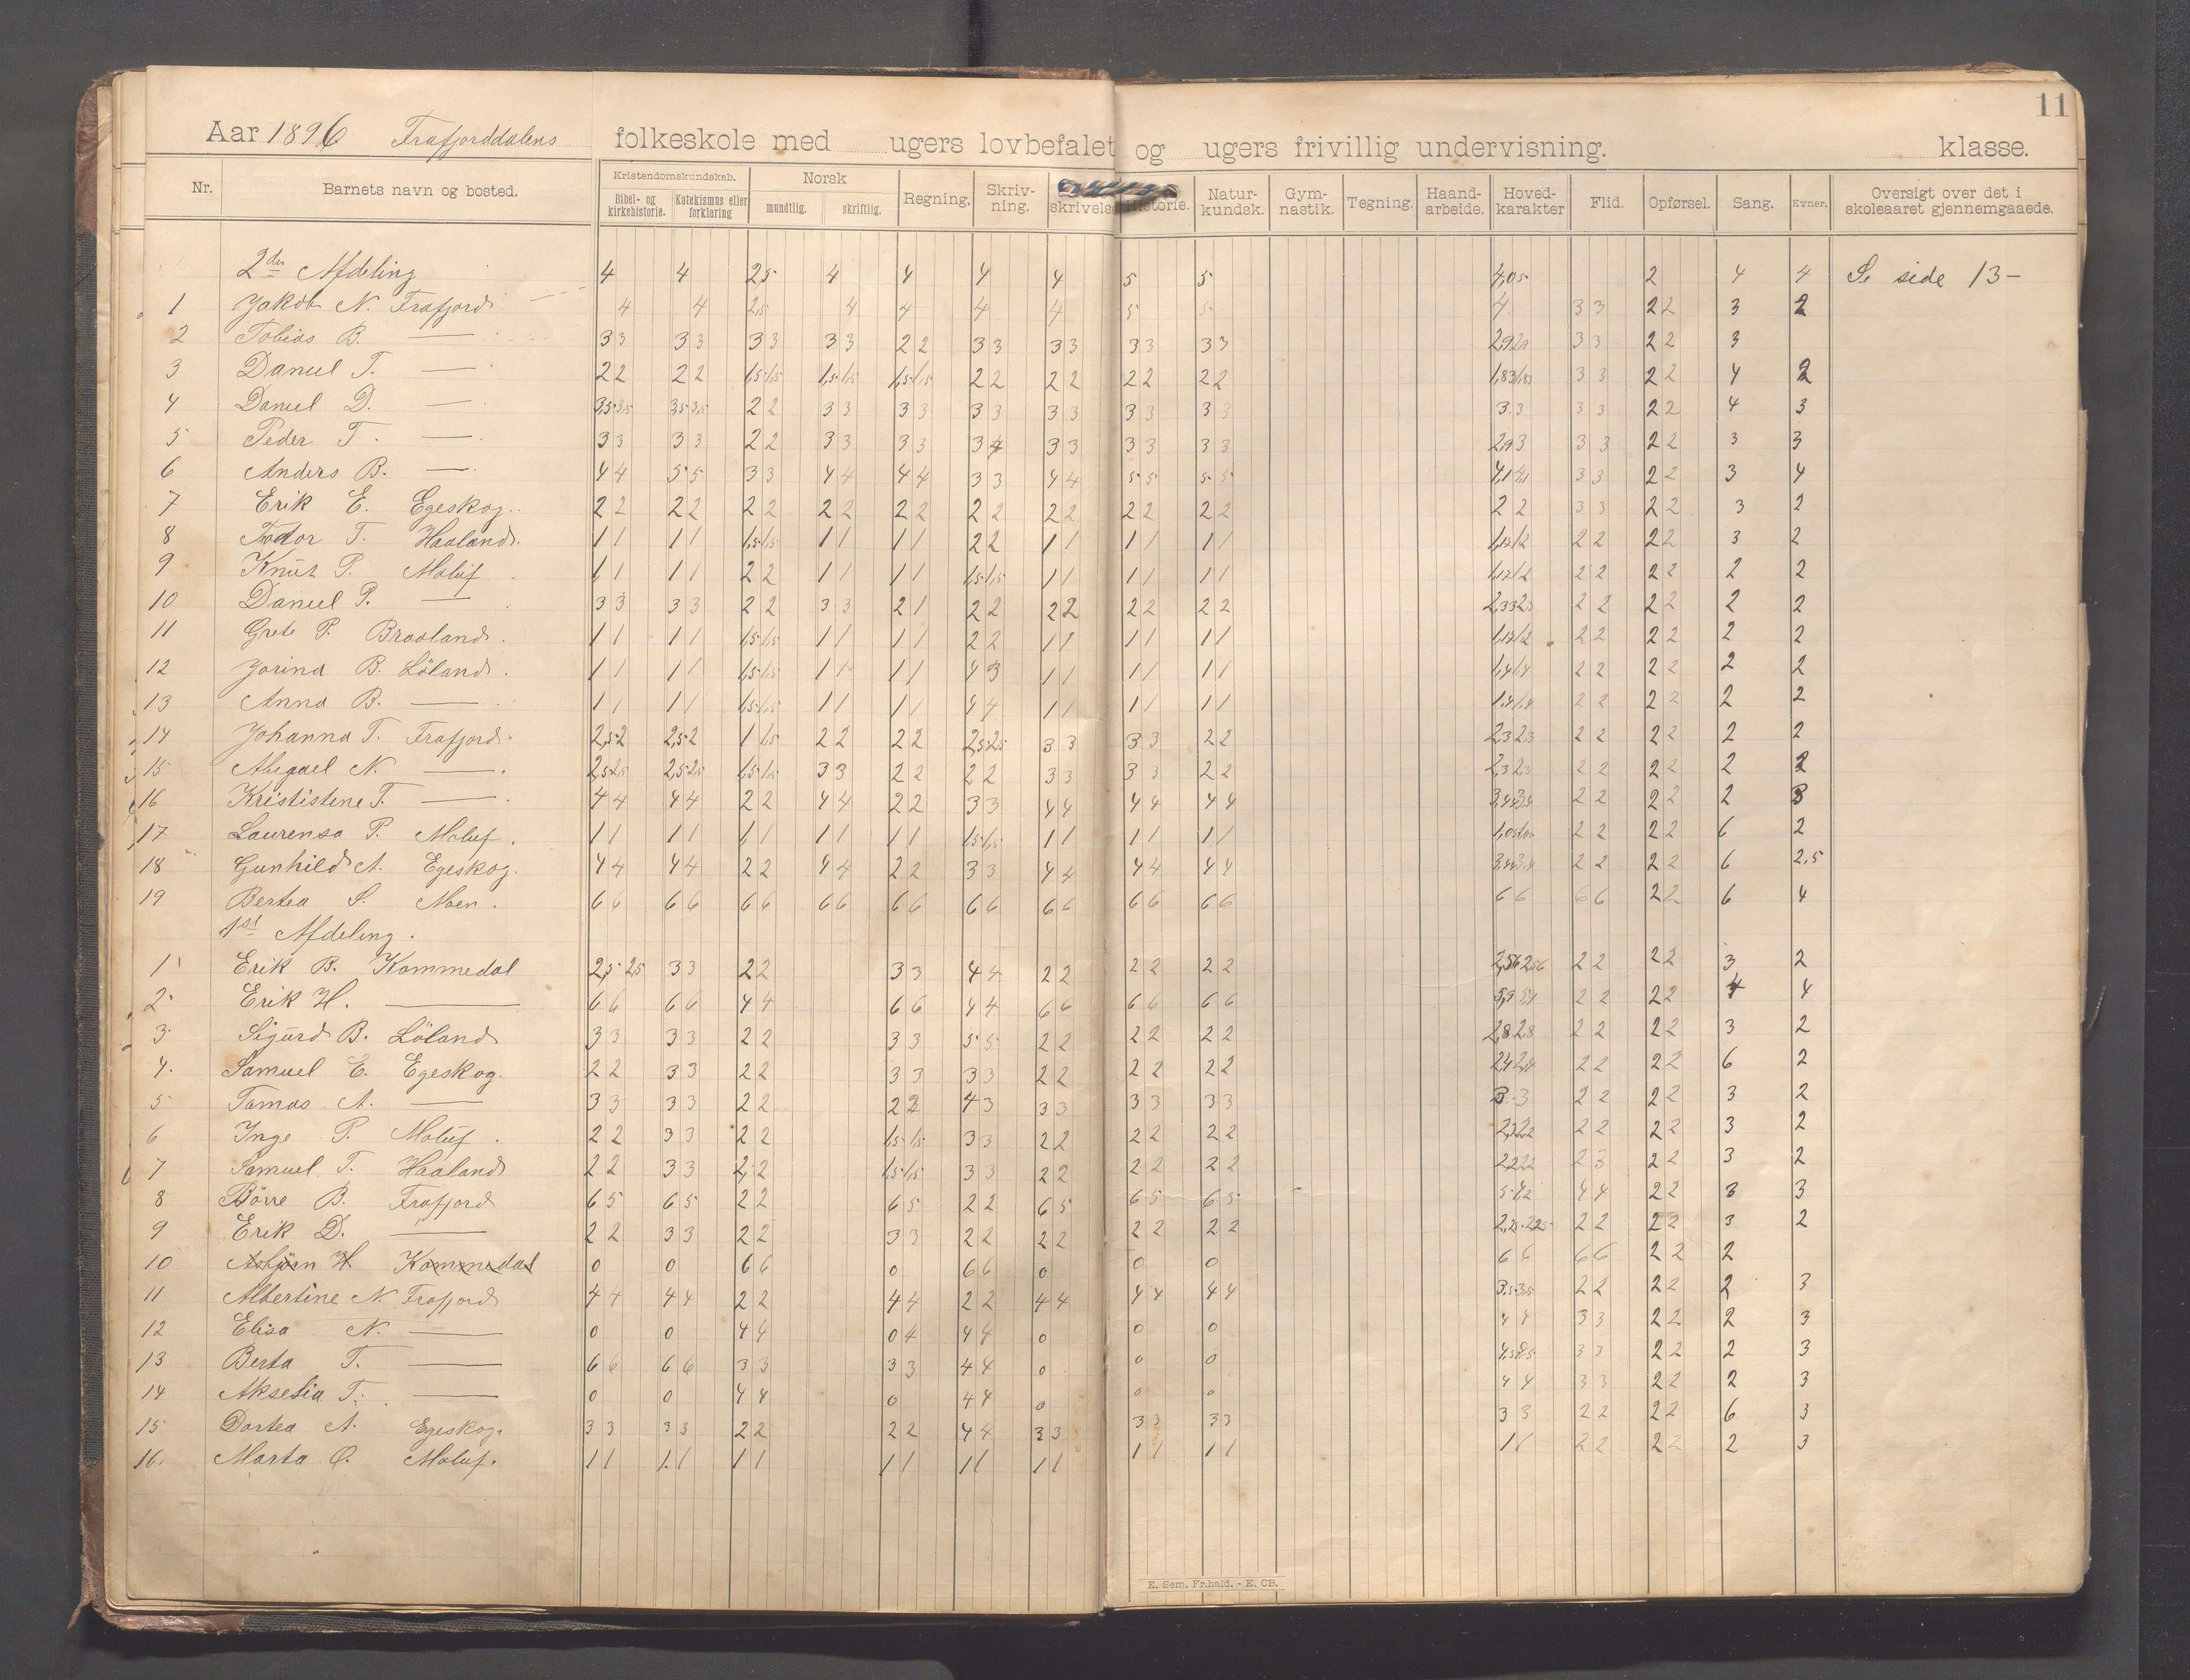 11
Aar 1896 Frafjorddalens folkeskole med ugers lovbefalet og ugers frivillig undervisning. klasse.
Nr. Barnets navn og bosted. Kristendomskundskab. Bibel- og kirkehistorie. Katekismus eller forklaring Norsk mundtlig. skriftlig. Regning. Skriv-ning. skrivelse Historie. Natur-kundsk. Gym-nastik. Tegning. Haand-arbeide. Hoved-karakter Flid. Opførsel. Sang. Evner. Oversigt over det i skoleaaret gjennemgaaede.
2den Afdeling 4 4 2,5 4 4 4 4 5 5 4,05 2 4 4 Se side 13-
1 Jakob N. Frafjord 4 4 2,5 4 4 4 4 5 5 4 33 22 3 2
2 Tobias B. — 33 33 33 33 22 33 33 33 33 33 22 3
3 Daniel T. — 22 22 1,5 1,5 1,5 1,5 1,5 1,5 22 22 22 22 1,83 1,83 33 22 4 2
4 Daniel D. — 3,5 3,5 3,5 3,5 22 33 33 33 33 33 33 33 33 22 4 3
5 Peder T. — 33 33 22 33 33 34 33 33 33 2,9 3 33 22 3 3
6 Anders B. — 44 55 33 44 44 33 44 55 55 4,1 4,1 33 22 3 4
7 Erik E. Egeskog. 22 22 22 22 22 22 22 22 22 22 33 22 3 2
8 Todor T. Haaland. 11 11 1,5 1,5 11 11 22 11 11 11 22 22 3 2
9 Knut P. Moluf 11 11 22 11 11 1,5 1,5 11 11 11 22 22 2 2
10 Daniel P. — 33 33 22 33 21 22 22 22 22 2,33 2,3 22 22 2 2
11 Grete P. Braaland. 11 11 1,5 1,5 11 11 22 11 11 11 22 22 2 2
12 Jorina B. Löland. 11 11 1,5 1,5 11 11 43 11 11 11 1,4 1,4 22 22 2 2
13 Anna B. — 11 11 1,5 1,5 11 11 44 11 11 11 1,4 1,4 22 22 2 2
14 Johanna T. Frafjord. 2,5 2 2,5 2 1 1,5 22 22 2,5 2,5 33 33 22 2,3 2,3 22 22 2 2
15 Abigael N. — 2,5 2,5 2,5 2,5 1,5 1,5 33 22 22 33 33 22 2,3 2,3 22 22 2 2
16 Krististene T. — 44 44 22 44 22 33 44 44 44 22 22 2 3
17 Laurensa P. Moluf. 11 11 11 11 11 1,5 1,5 11 11 11 22 22 6 2
18 Gunhild A. Egeskog. 44 44 22 44 22 33 44 44 44 22 22 6 2,5
19 Bertea S. Moen. 66 66 66 66 66 66 66 66 66 66 66 22 6 4
1st Afdeling.
1 Erik B. Kommedal 2,5 2,5 33 22 33 44 22 22 22 2,56 2,56 22 22 3 2
2 Erik H. — 66 66 44 66 44 66 66 66 22 22 4 4
3 Sigurd B. Löland 33 33 22 33 55 22 22 22 2,8 2,8 22 22 3 2
4. Samuel E. Egeskog. 22 33 22 33 33 22 22 22 2,4 2,4 22 22 6 2
5 Tomas A. — 33 33 22 22 43 33 33 33 3 3 22 22 3 2
6 Inge P. Moluf. 22 33 22 1,5 1,5 33 22 22 22 2,2 2,2 22 22 3 2
7 Samuel T. Haaland 22 33 22 1,5 1,5 33 22 22 22 2,2 2,2 23 22 3 2
8 Börre B. Frafjord 65 65 22 65 22 65 65 65 44 22 3 3
9 Erik D. — 22 33 22 33 22 22 22 22 2,25 2,25 22 22 3 2
10 Asbjörn H. Kommedal 0 0 66 0 66 0 0 0 66 66 22 2
11 Albertine N. Frafjord 44 44 22 44 22 44 44 44 3,5 3,5 22 22 2 3
12 Elisa N. — 0 0 44 04 44 0 0 0 44 33 22 2 3
13 Berta T. — 66 66 33 33 44 0 0 0 33 22 2 3
14 Akselia T. — 0 0 44 0 44 0 0 0 44 33 22 2 3
15 Dortea A. Egeskog. 33 33 22 22 44 33 33 33 33 22 22 6 3
16. Marta O. Moluf. 11 11 11 11 11 11 11 11 11 22 22 2 3
E. Sem, Fr.hald. - E. CB.